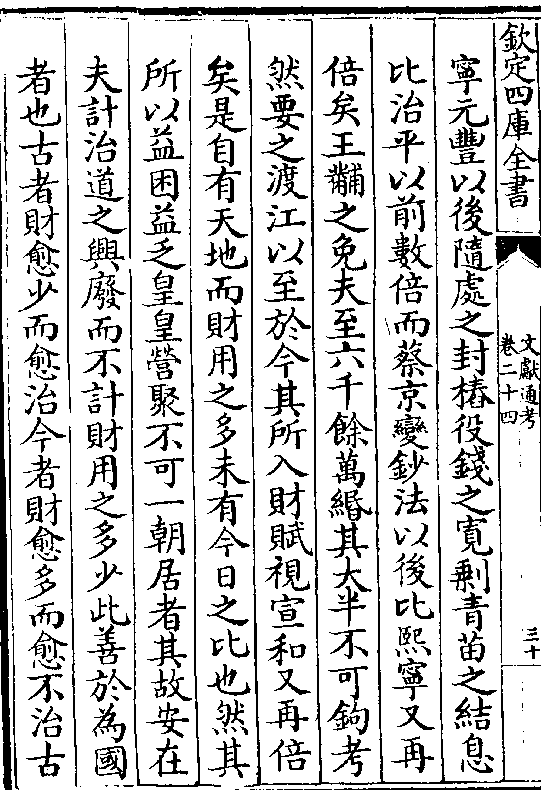 欽定四庫全書
文獻通考
卷二十四
三十
寧元豐以後隨處之封樁役錢之寛剰青苗之結息
比治平以前數倍而蔡京變鈔法以後比熙寧又再
倍矣王黼之免夫至六千餘萬緡其大半不可鉤考
然要之渡江以至於今其所入財賦視宣和又再倍
矣是自有天地而財用之多未有今日之比也然其
所以益困益乏皇皇營聚不可一朝居者其故安在
夫計治道之興廢而不計財用之多少此善於為國
者也古者財愈少而愈治今者財愈多而愈不治古